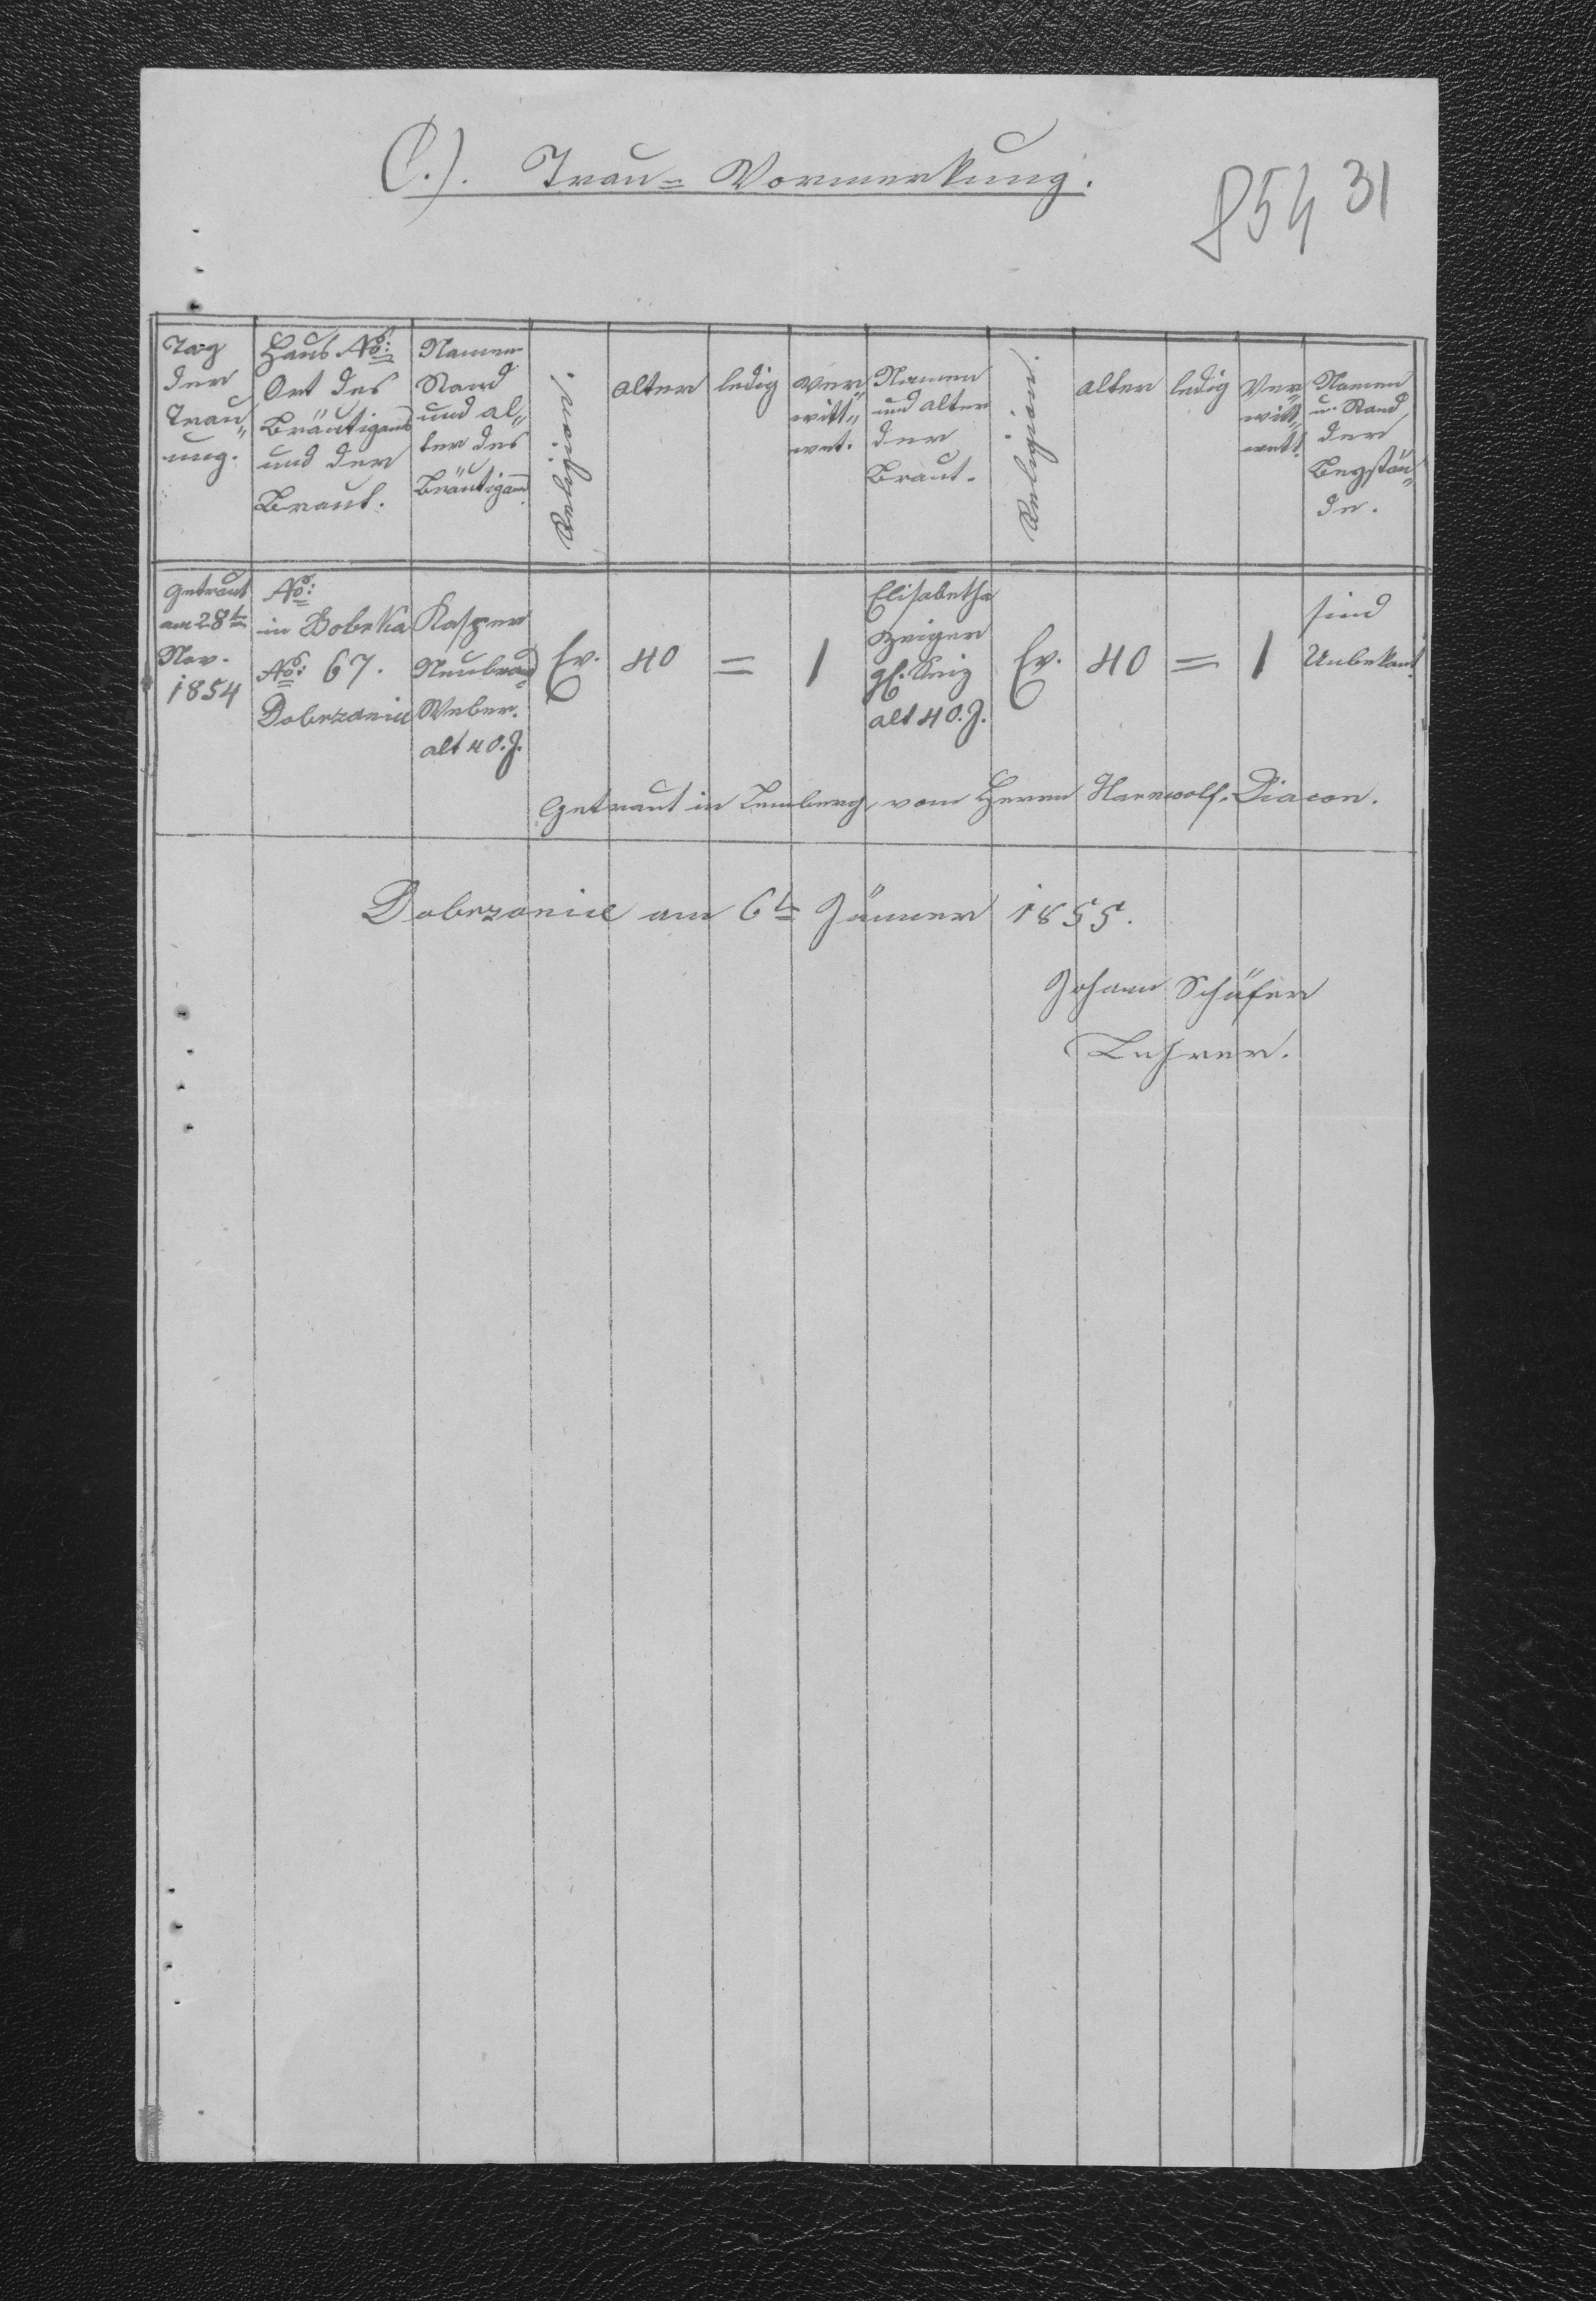 C.). Trau= Vormerkung.
854 31
Tag
der
Trau"
ung.
Haus No:
Ort des
Bräutigams
und der
Braut.
Namen
Stand
und al"
ter des
Bräutigam
Religion.
alter
ledig
ver"
witt"
wet.
Namen
und alter
der
Braut.
Religion.
alter
ledig
Ver"
witt"
wet!
Namen
u. Stand
der
Beystän"
de.
Getraut
am 28ten
Nov.
1854
No:
in Bobrka
No: 67.
Dobrzanice
Kasper
Neubrand
Weber.
alt 40. J.
Ev.
40
=
1
Elisabetha
Zeiger
alt 40. J.
Ev.
40
=
1
sind
Unbekant.
Getraut in Lemberg, vom Herrn Harrwolf. Diacon.
Dobrzanice am 6ten Jänner 1855.
Johann Schäfer
Lehrer.